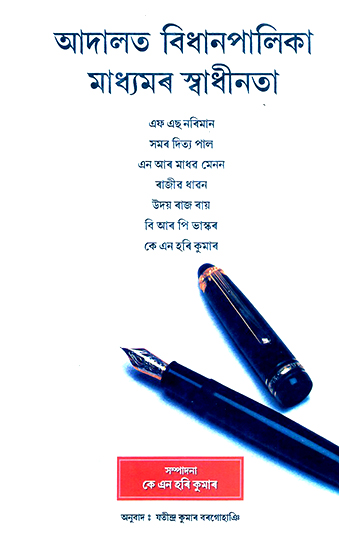 আদালত বিধানপালিকা
মাধ্যমৰ স্বাধীনতা
এফ এছ নৰিমান
সমৰ দিত্য পাল
এন আৰ মাধৱ মেনন
ৰাজীৱ ধাৱন
উদয় ৰাজ ৰায়
বি আৰ পি ভাস্কৰ
কে এন হৰি কুমাৰ
সম্পাদনা
কে এন হৰি কুমাৰ
অনুবাদ : যতীন্দ্ৰ কুমাৰ বৰগোহাঞি